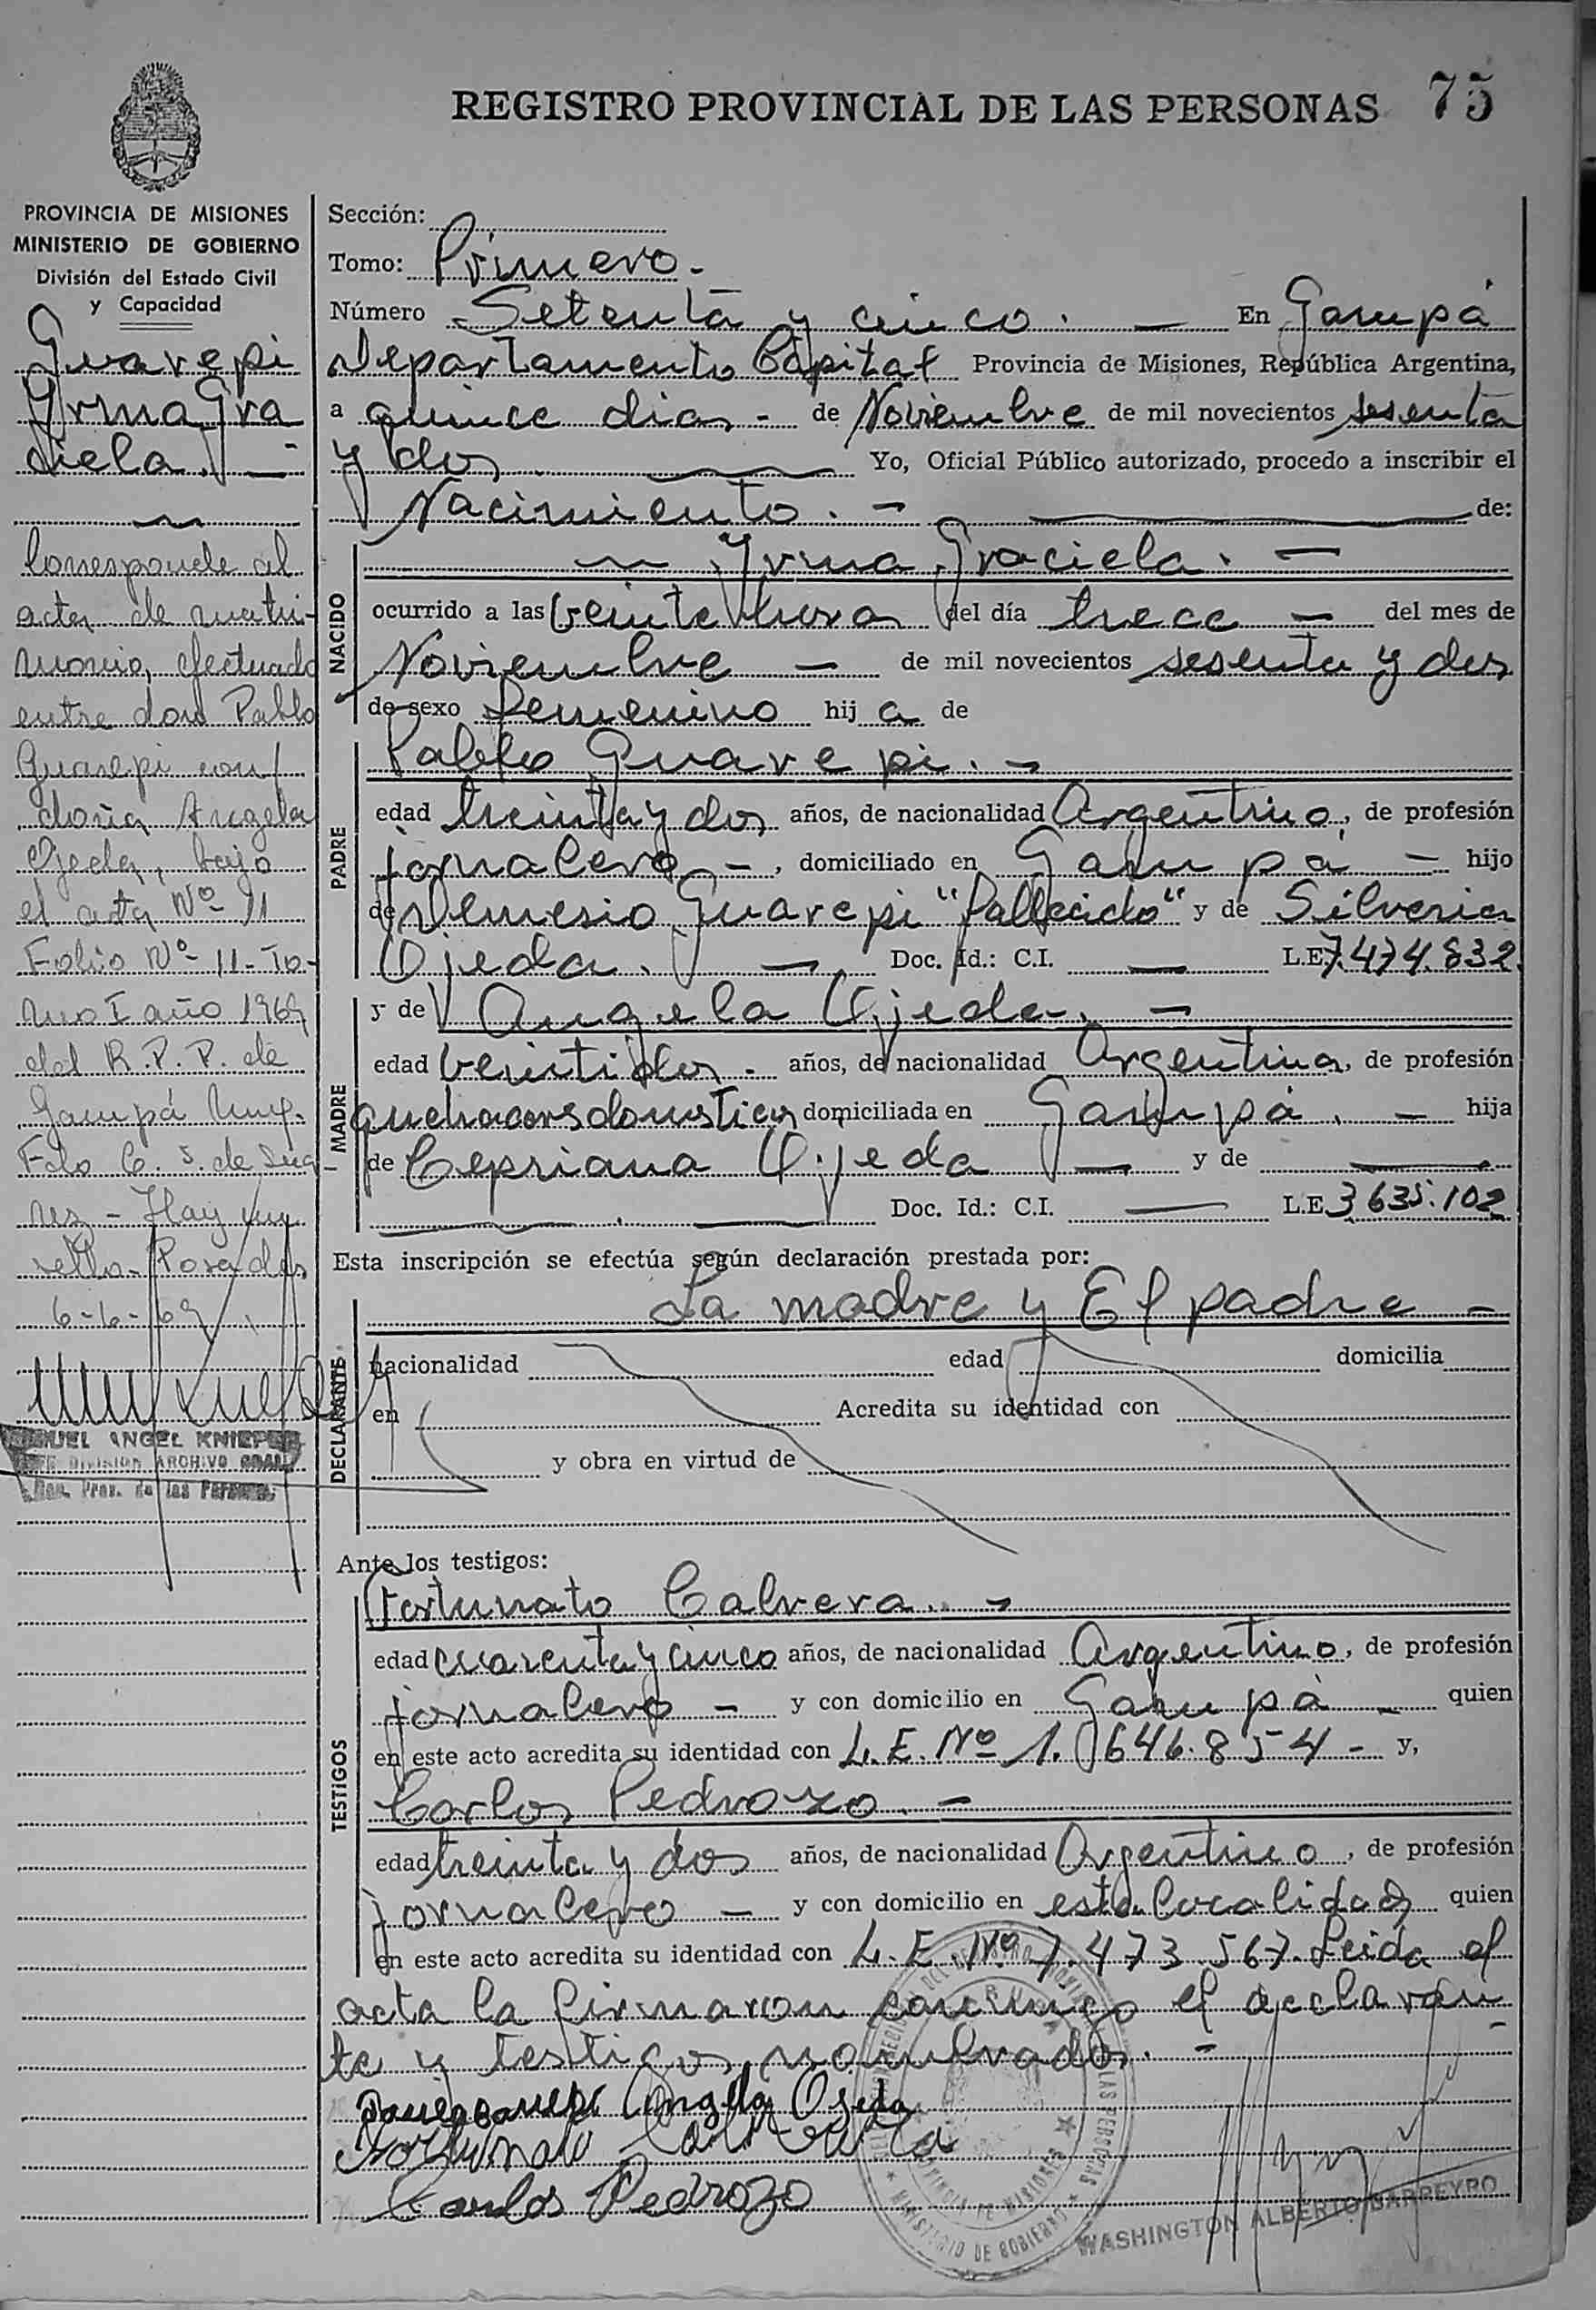 REGISTRO PROVINCIAL DE LAS PERSONAS 75
PROVINCIA DE MISIONES
MINISTERIO DE GOBIERNO
División del Estado Civil
y Capacidad
Guarepi
Yrma Gra
ciela. —
Corresponde al
acta de matri-
monio, efectuado
entre don Pablo
Guarepi con
doña Angela
Ojeda, bajo
el acta Nº 11
Folio Nº 11 - To-
mo I año 1969
del R.P.P. de
Garupá
Fdo C. S. de Suá
rez - Hay un
sello - Posadas
6-6-69
MIGUEL ANGEL KNIEPER
JEFE DIVISION ARCHIVO GRAL
Prov. de las Personas
Sección:
Tomo: Primero.
Número Setenta y cinco. — En Garupá
Departamento Capital Provincia de Misiones, República Argentina,
a quince dias - de Noviembre de mil novecientos sesenta
y dos Yo, Oficial Público autorizado, procedo a inscribir el
Nacimiento. — de:
NACIDO
Yrma Graciela. —
ocurrido a las veinte hora del día trece — del mes de
Noviembre — de mil novecientos sesenta y dos
de sexo femenino hij a de
PADRE
Pablo Guarepi. —
edad treinta y dos años, de nacionalidad Argentino, de profesión
jornalero —, domiciliado en Garupá — hijo
de Nemesio Guarepi "fallecido" y de Silveria
Ojeda. — Doc. Id.: C.I. — L.E. 7.474.832.
MADRE
y de Angela Ojeda. —
edad veintidos - años, de nacionalidad Argentina, de profesión
quehaceres domesticos domiciliada en Garupá. — hija
de Cepriana Ojeda — y de —
Doc. Id.: C.I. — L.E. 3.635.102
Esta inscripción se efectúa según declaración prestada por:
DECLARANTE
La madre y El padre —
nacionalidad edad domicilia
en Acredita su identidad con
y obra en virtud de
Ante los testigos:
TESTIGOS
Fortunato Cabrera. —
edad cuarenta y cinco años, de nacionalidad Argentino, de profesión
jornalero — y con domicilio en Garupá — quien
en este acto acredita su identidad con L.E. Nº 1.646.854 - y,
Carlos Pedrozo. —
edad treinta y dos años, de nacionalidad Argentino, de profesión
jornalero — y con domicilio en esta localidad quien
en este acto acredita su identidad con L.E. Nº 7.473.567. Leida el
acta la firmaron conmigo el declaran-
te y testigos nombrados. —
Angela Ojeda
Fortunato Cabrera
Carlos Pedrozo
PROVINCIA DE MISIONES
MINISTERIO DE GOBIERNO
WASHINGTON ALBERTO BARREYRO